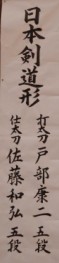 日本剣道形
打太刀 戸部康二 五段
仕太刀 佐藤和弘 五段